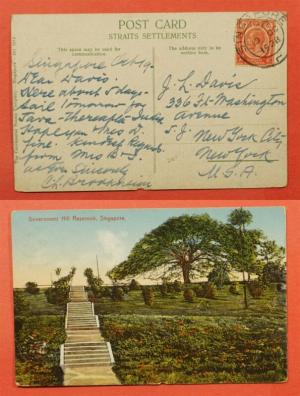 POST CARD
STRAITS SETTLEMENTS
This space may be used for
communication.
The address only to be
written here.
Singapore Oct 19
Dear Davis.
Here about 5 days.
Sail tomorrow for
Java - thereafter India
Hope you & Mrs D.
fine. Kindest Regards
from Mrs B - &
Sincerely
J. L. Davis
336 Ft. Washington
Avenue
New York City
New York
U.S.A.
Government Hill Reservoir, Singapore.